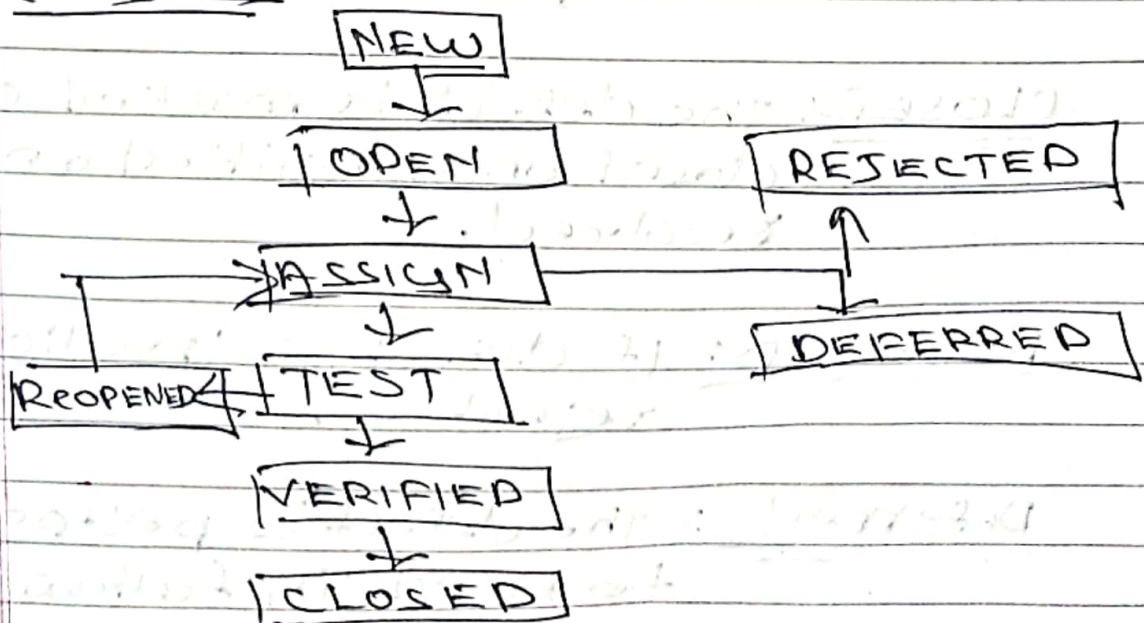 NEW
OPEN
REJECTED
ASSIGN
DEFERRED
REOPENED
TEST
VERIFIED
CLOSED